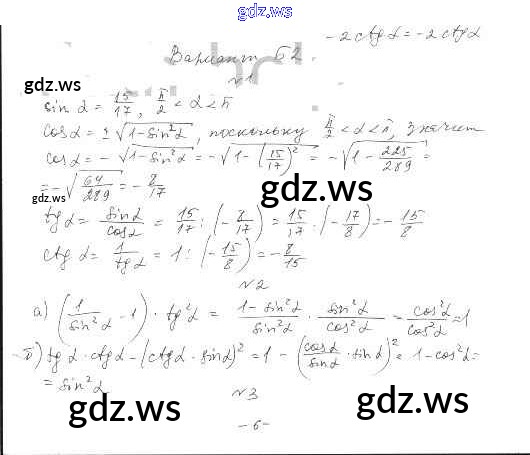 gdz.ws
-2ctgα = -2ctgα
Вариант Б2
№1
sin α = 15/17, π/2 < α < π
cosα = ±√(1-sin²α), поскольку π/2 < α < π, значит
cosα = -√(1-sin²α) = -√(1-(15/17)²) = -√(1-225/289) =
= -√(64/289) = -8/17
tgα = sinα/cosα = 15/17 : (-8/17) = 15/17 · (-17/8) = -15/8
ctgα = 1/tgα = 1 : (-15/8) = -8/15
№2
а) (1/sin²α - 1) · tg²α = (1-sin²α)/sin²α · sin²α/cos²α = cos²α/cos²α = 1
б) tgα · ctgα - (ctgα · sinα)² = 1 - (cosα/sinα · sinα)² = 1-cos²α =
= sin²α
№3
-6-
gdz.ws
gdz.ws
gdz.ws
gdz.ws
gdz.ws